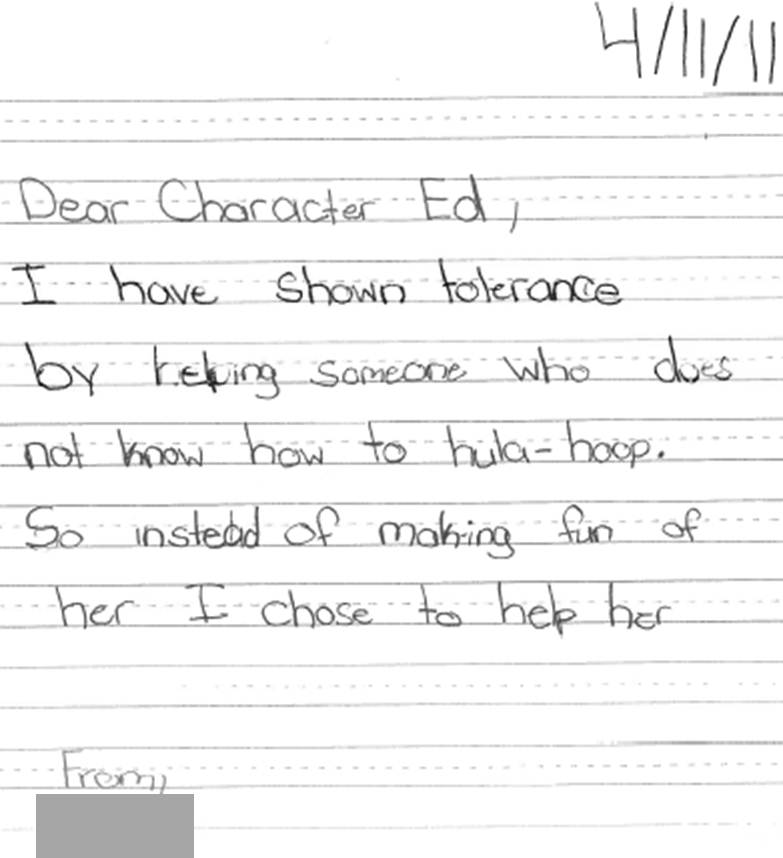 4/11/11
Dear Character Ed,
I have shown tolerance
by helping someone who does
not know how to hula-hoop.
So instead of making fun of
her I chose to help her
From,